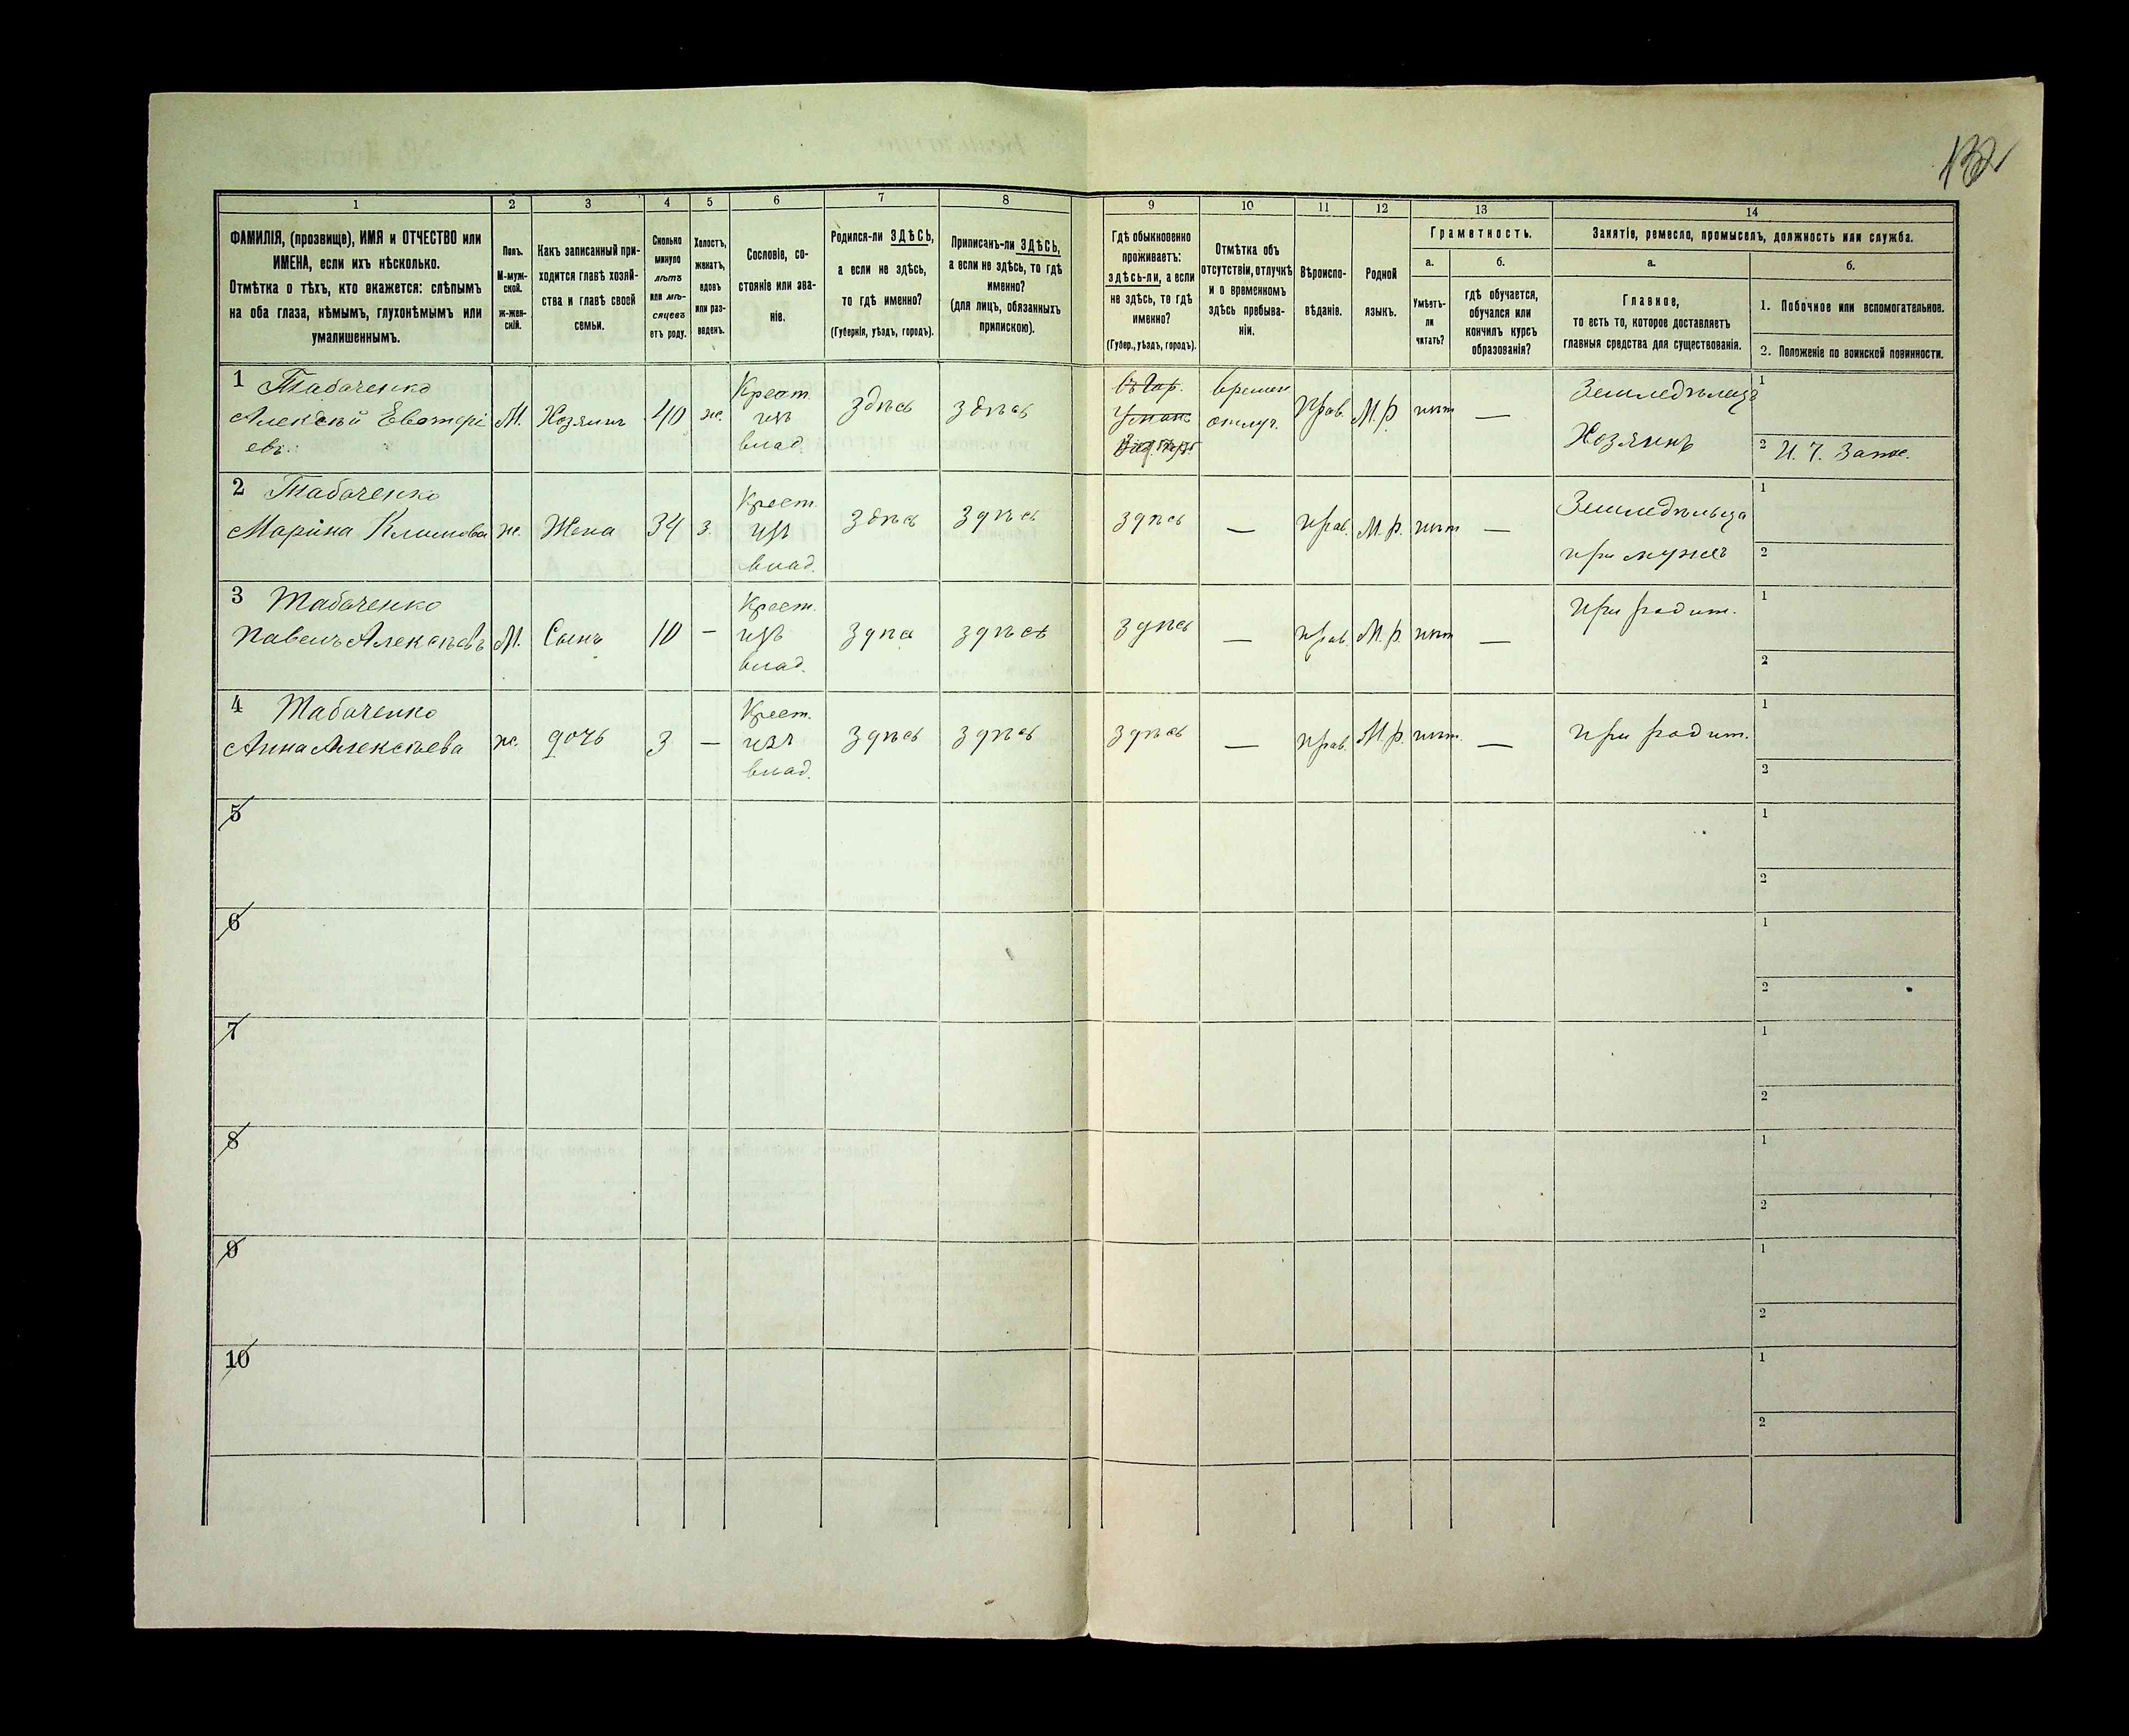 132
1 2 3 4 5 6 7 8 9 10 11 12 13 14
ФАМИЛІЯ, (прозвище), ИМЯ и ОТЧЕСТВО или
ИМЕНА, если ихъ нѣсколько.
Отмѣтка о тѣхъ, кто окажется: слѣпымъ
на оба глаза, нѣмымъ, глухонѣмымъ или
умалишеннымъ.
Полъ.
М-муж-
ской.
ж-жен-
скій.
Какъ записанный при-
ходится главѣ хозяй-
ства и главѣ своей
семьи.
Сколько
минуло
лѣтъ
или мѣ-
сяцевъ
отъ роду.
Холостъ,
женатъ,
вдовъ
или раз-
веденъ.
Сословіе, со-
стояніе или зва-
ніе.
Родился-ли ЗДѢСЬ,
а если не здѣсь,
то гдѣ именно?
(Губернія, уѣздъ, городъ).
Приписанъ-ли ЗДѢСЬ,
а если не здѣсь, то гдѣ
именно?
(для лицъ, обязанныхъ
припискою).
Гдѣ обыкновенно
проживаетъ:
здѣсь-ли, а если
не здѣсь, то гдѣ
именно?
(Губер., уѣздъ, городъ).
Отмѣтка объ
отсутствіи, отлучкѣ
и о временномъ
здѣсь пребыва-
ніи.
Вѣроиспо-
вѣданіе.
Родной
языкъ.
Грамотность.
а. б.
Умѣетъ-
ли
читать?
гдѣ обучается,
обучался или
кончилъ курсъ
образованія?
Занятіе, ремесло, промыселъ, должность или служба.
а. б.
Главное,
то есть то, которое доставляетъ
главныя средства для существованія.
1. Побочное или вспомогательное.
2. Положеніе по воинской повинности.
1 Табаченко
Алексѣй Евстафі
евъ.
М. Хозяинъ 40 ж.
Крест.
изъ
влад.
здѣсь здѣсь
времен
отлуч.
Прав. М. р. нѣт —
Земледѣлецъ
Хозяинъ
1
2
2 Табаченко
Марина Климова ж. Жена 34 з.
Крест.
изъ
влад.
здѣсь здѣсь здѣсь — прав. М. р. нѣт —
Земледѣльца
при мужѣ
1
2
3 Табаченко
Павелъ Алексѣевъ М. Сынъ 10 —
Крест.
изъ
влад.
здѣсь здѣсь здѣсь — прав. М. р. нѣт —
при родит.
1
2
4 Табаченко
Анна Алексѣева ж. дочь 3 —
Крест.
изъ
влад.
здѣсь здѣсь здѣсь — прав. М. р. нѣт. —
при родит.
1
2
5 1
2
6 1
2
7 1
2
8 1
2
9 1
2
10 1
2